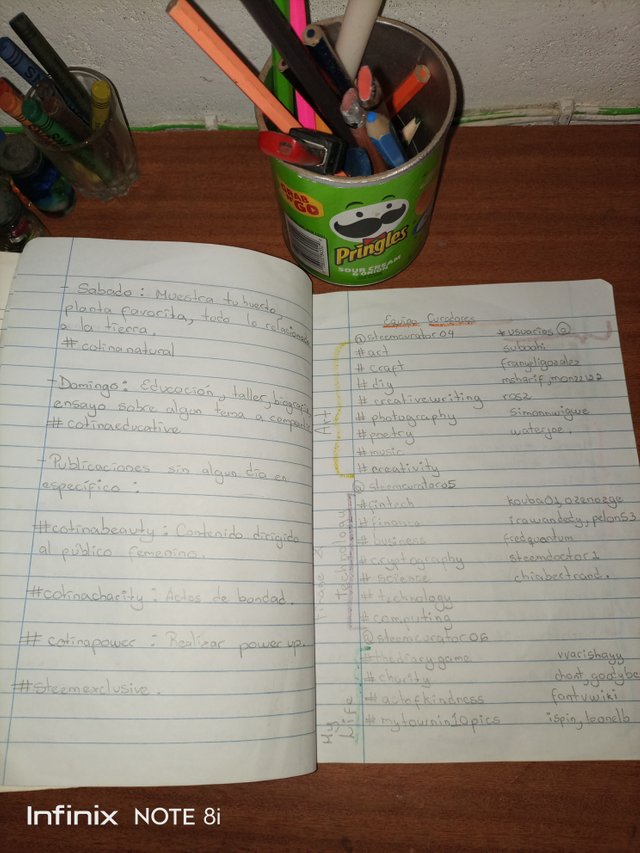 GRAB
N GO
Pringles
SOUR CREAM
& ONION
- Sabado: Muestra tu huerto,
planta favorita, todo lo relacionado
a la tierra.
# cotinanatural
- Domingo: Educación, taller, biografia,
ensayo sobre algun tema a compartir
# cotinaeducative
- Publicaciones sin algun dia en
especifico:
# cotinabeauty: Contenido dirigido
al público femenino.
# cotinacharity: Actos de bondad.
# cotinapower: Realizar power up.
# steemexclusive.
Equipo Curadores
@steemcurator04 * usuarios @
# art
# craft
# diy
# creativewriting
# photography
# poetry waterjoe.
# music
# creativity
Art
@steemcurator05
# fintech
# finance
# business fredquantum
# cryptography steemdoctor1
# science chiabertrand.
# technology
# computing
technology
@steemcurator06
# thediarygame
# charity
# actofkindness fantvwiki
# mytownin10pics
My
Life
Infinix NOTE 8i